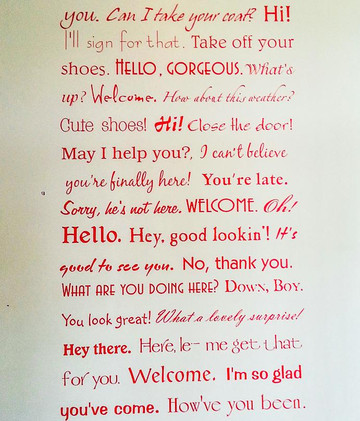 you. Can I take your coat? Hi!
I'll sign for that. Take off your
shoes. HELLO, GORGEOUS. What's
up? Welcome. How about this weather?
Cute shoes! Hi! Close the door!
May I help you?, I can't believe
you're finally here! You're late.
Sorry, he's not here. WELCOME. Oh!
Hello. Hey, good lookin'! It's
good to see you. No, thank you.
WHAT ARE YOU DOING HERE? Down, Boy.
You look great! What a lovely surprise!
Hey there. Here, le- me get that
for you. Welcome. I'm so glad
you've come. How've you been.